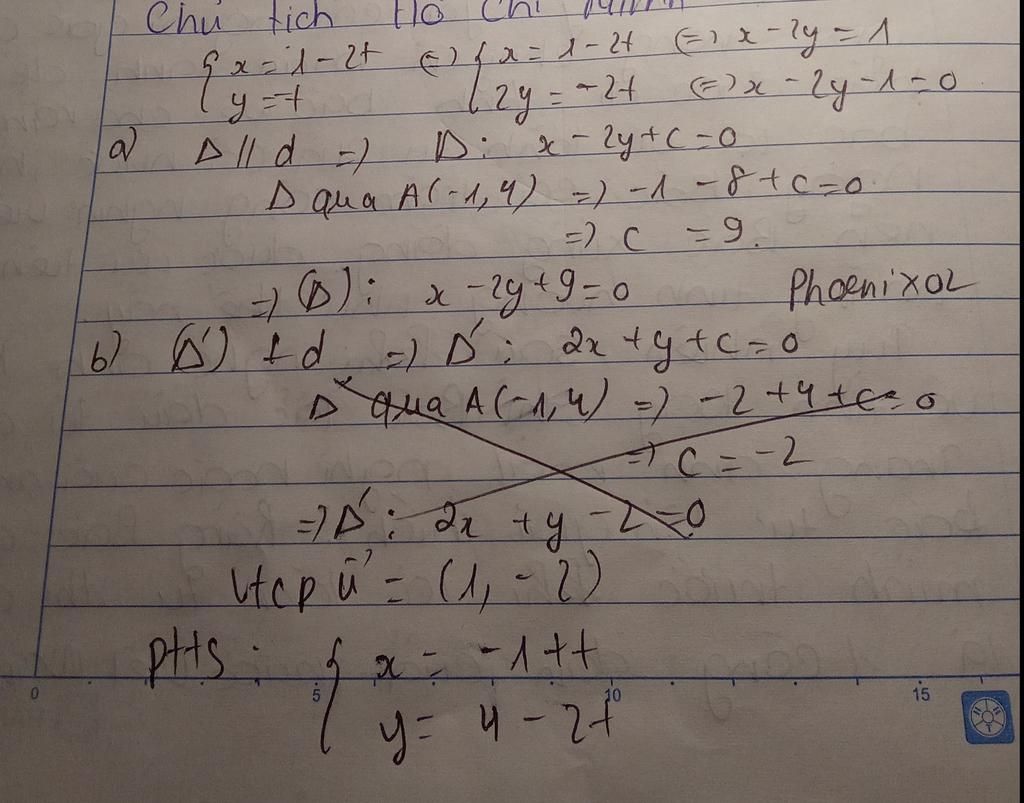 Chủ tịch Hồ Chí Minh
{ x = 1 - 2t (=) { x = 1 - 2t (=) x - 2y = 1
y = -t 2y = -2t (=) x - 2y - 1 = 0
a) Δ // d => Δ: x - 2y + c = 0
Δ qua A(-1,4) => -1 - 8 + c = 0
=> c = 9.
=> (Δ): x - 2y + 9 = 0 Phoenix02
b) (Δ') ⊥ d => Δ': 2x + y + c = 0
Δ qua A(-1,4) => -2 + 4 + c = 0
=> c = -2
=> Δ': 2x + y - 2 = 0
Vtcp u⃗ = (1, -2)
PTTS: { x = -1 + t
y = 4 - 2t
0 5 10 15